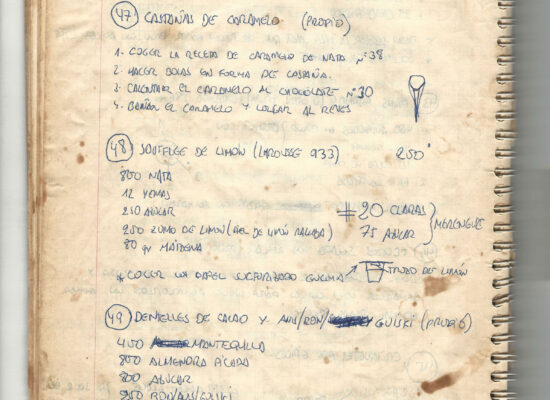 47 CASTAÑAS DE CARAMELO (PROPIO)
1. COGER LA RECETA DE CARAMELO DE NATA Nº38
2. HACER BOLAS EN FORMA DE CASTAÑA.
3. CALENTAR EL CARAMELO AL CHOCOLATE Nº30
4. BAÑAR EL CARAMELO Y COLGAR AL REVES
48 SOUFFLGE DE LIMÓN (LAROUSSE 933) 250°
800 NATA
12 YEMAS
250 AZUCAR # 20 CLARAS
250 ZUMO DE LIMÓN (PIEL DE LIMÓN RALLADA) 75 AZUCAR MERENGUE
80 gr MAIZENA
* COGER UN PAPEL ENCIMA TROZO DE LIMÓN
49 DENTELLES DE CACAO Y ANÍS/RON/GUISKI (PROPIO)
400 MANTEQUILLA
800 ALMENDRA PICADA
800 AZUCAR
250 RON/ANIS/GUISKI